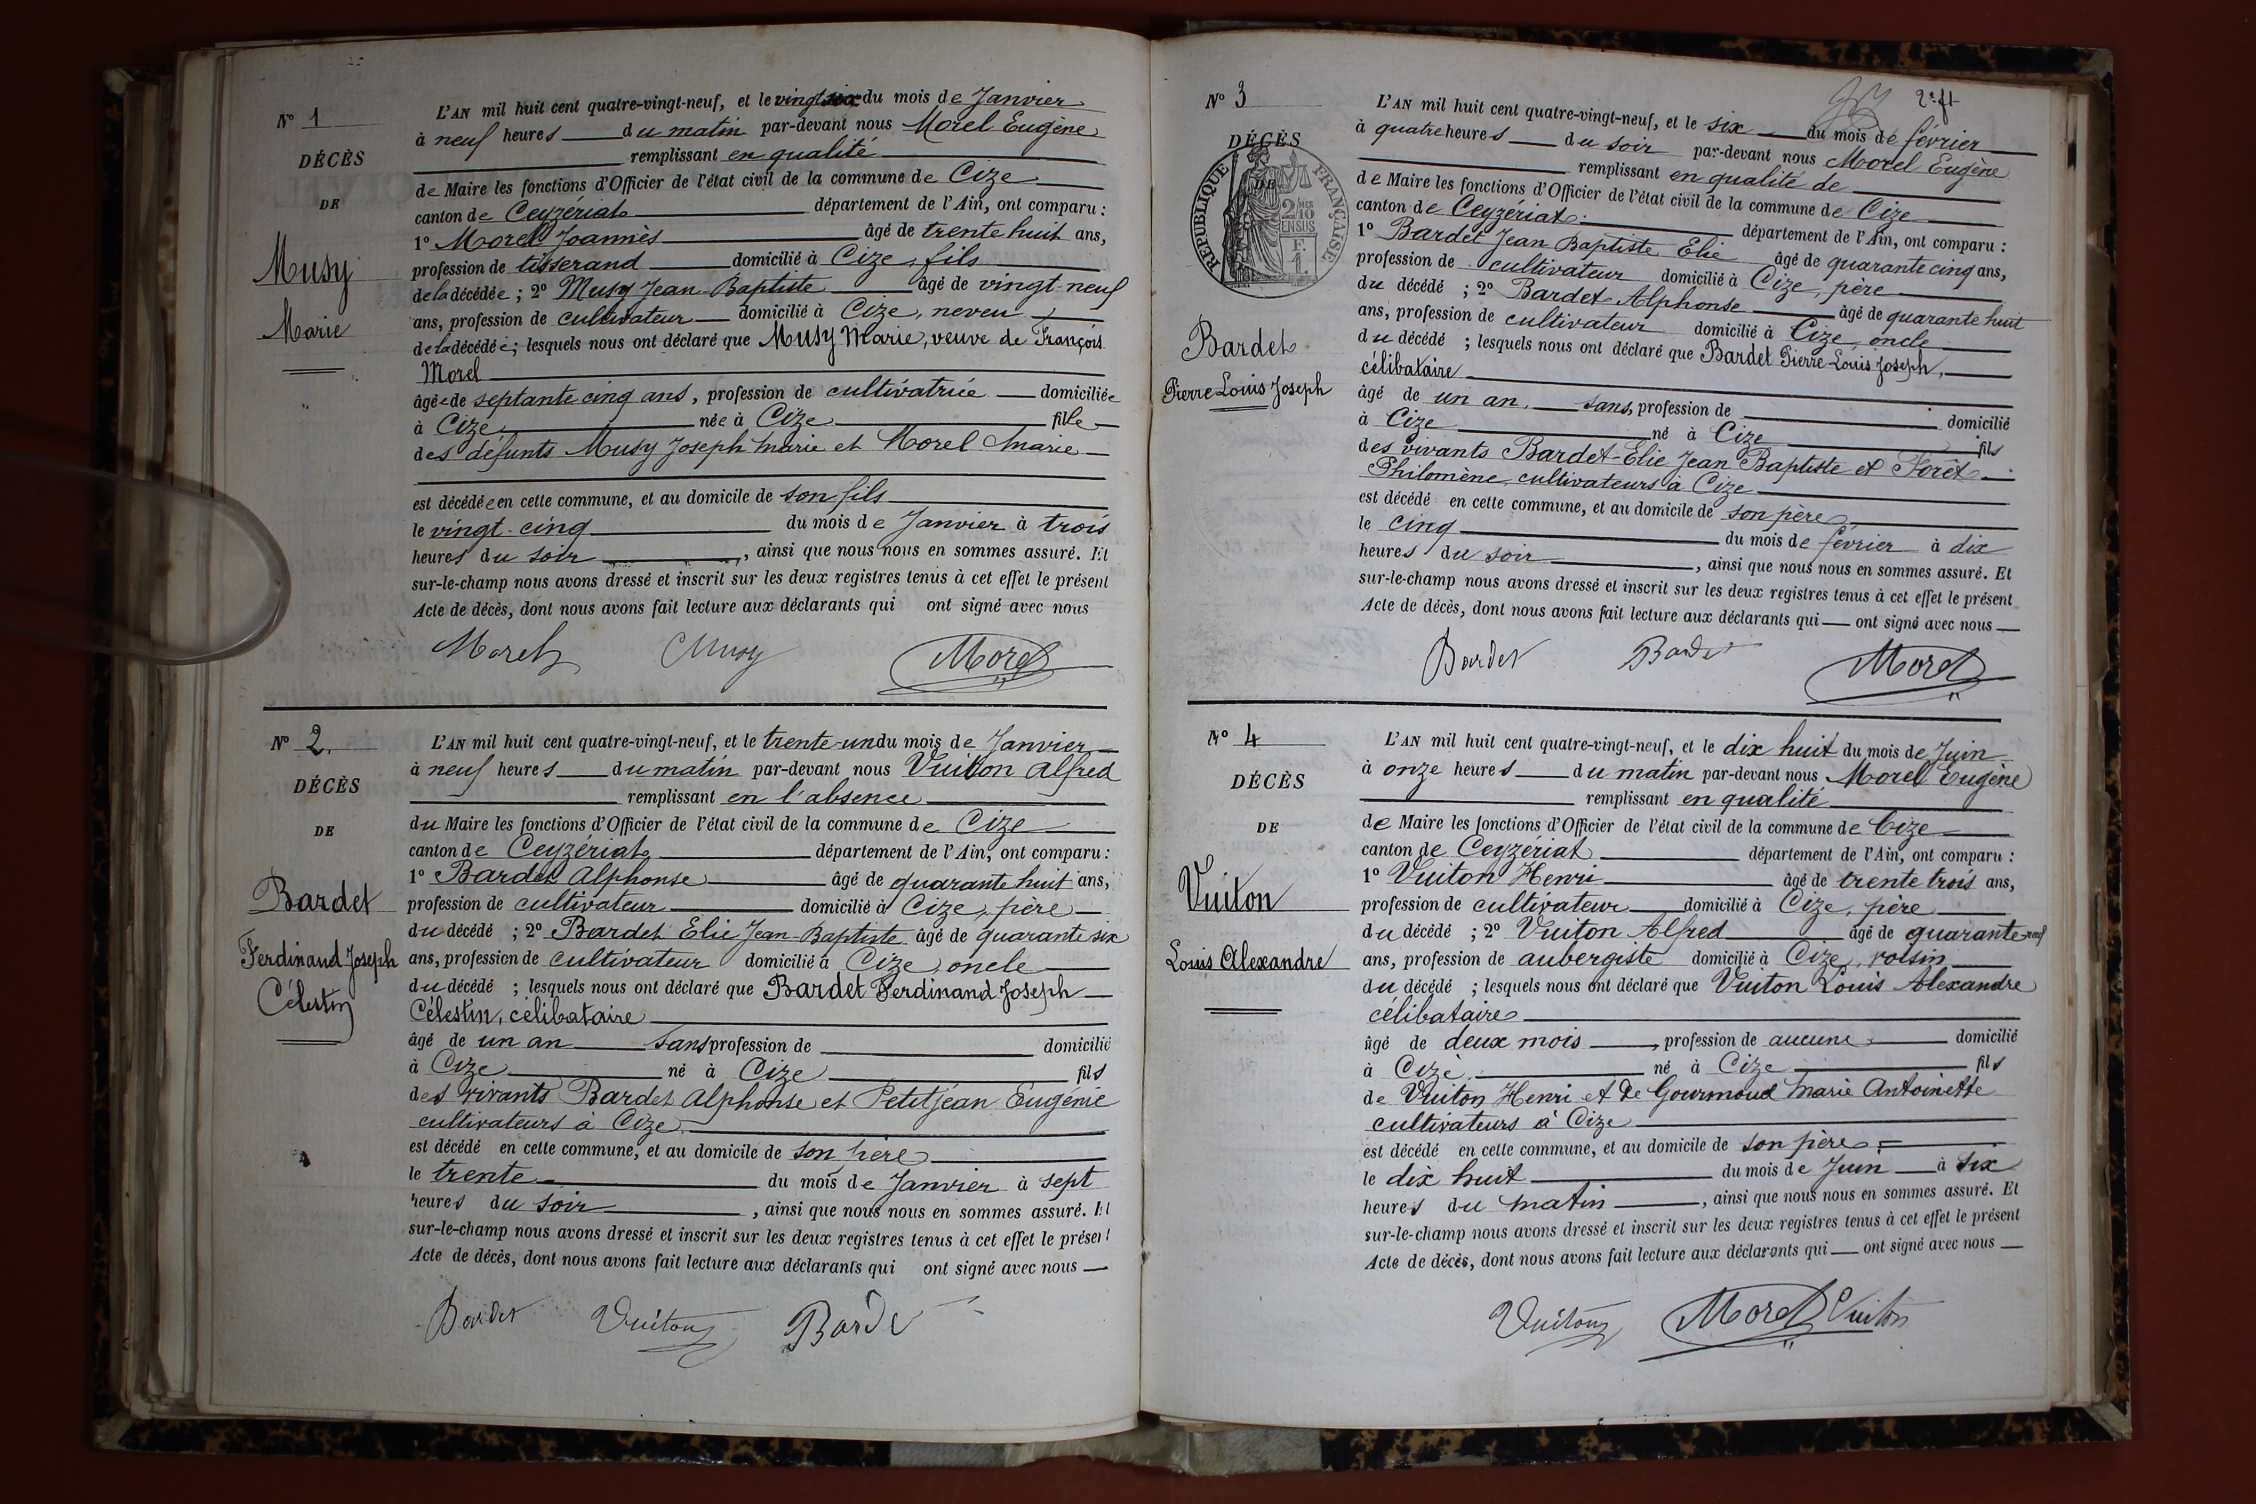 N° 1
DÉCÈS
DE
Musy
Marie
L'AN mil huit cent quatre-vingt-neuf, et le vingt six du mois de Janvier
à neuf heures du matin par-devant nous Morel Eugène
remplissant en qualité
de Maire les fonctions d'Officier de l'état civil de la commune de Cize
canton de Ceyzériat département de l'Ain, ont comparu :
1° Morel Joannès âgé de trente huit ans,
profession de tisserand domicilié à Cize, fils
de la décédée ; 2° Musy Jean-Baptiste âgé de vingt-neuf
ans, profession de cultivateur domicilié à Cize, neveu
de la décédée ; lesquels nous ont déclaré que Musy Marie, veuve de François
Morel
âgée de septante cinq ans, profession de cultivatrice domiciliée
à Cize née à Cize fille
des défunts Musy Joseph Marie et Morel Marie
est décédée en cette commune, et au domicile de son fils
le vingt-cinq du mois de Janvier à trois
heures du soir, ainsi que nous nous en sommes assuré. Et
sur-le-champ nous avons dressé et inscrit sur les deux registres tenus à cet effet le présent
Acte de décès, dont nous avons fait lecture aux déclarants qui ont signé avec nous
Morel Musy Morel
N° 2.
DÉCÈS
DE
Bardet
Ferdinand Joseph
Célestin
L'AN mil huit cent quatre-vingt-neuf, et le trente-un du mois de Janvier
à neuf heures du matin par-devant nous Vuiton Alfred
remplissant en l'absence
du Maire les fonctions d'Officier de l'état civil de la commune de Cize
canton de Ceyzériat département de l'Ain, ont comparu :
1° Bardet Alphonse âgé de quarante huit ans,
profession de cultivateur domicilié à Cize, père
du décédé ; 2° Bardet Elie Jean-Baptiste âgé de quarante six
ans, profession de cultivateur domicilié à Cize, oncle
du décédé ; lesquels nous ont déclaré que Bardet Ferdinand Joseph
Célestin, célibataire
âgé de un an sans profession de domicilié
à Cize né à Cize fils
des vivants Bardet Alphonse et Petitjean Eugénie
cultivateurs à Cize
est décédé en cette commune, et au domicile de son père
le trente du mois de Janvier à sept
heures du soir, ainsi que nous nous en sommes assuré. Et
sur-le-champ nous avons dressé et inscrit sur les deux registres tenus à cet effet le présent
Acte de décès, dont nous avons fait lecture aux déclarants qui ont signé avec nous
Bardet Vuiton Bardet
2e ft
N° 3
DÉCÈS
DE
RÉPUBLIQUE FRANÇAISE
2/10 EN SUS
F. 1.
Bardet
Pierre Louis Joseph
L'AN mil huit cent quatre-vingt-neuf, et le six du mois de février
à quatre heures du soir par-devant nous Morel Eugène
remplissant en qualité de
de Maire les fonctions d'Officier de l'état civil de la commune de Cize
canton de Ceyzériat département de l'Ain, ont comparu :
1° Bardet Jean Baptiste Elie âgé de quarante cinq ans,
profession de cultivateur domicilié à Cize, père
du décédé ; 2° Bardet Alphonse âgé de quarante huit
ans, profession de cultivateur domicilié à Cize, oncle
du décédé ; lesquels nous ont déclaré que Bardet Pierre Louis Joseph,
célibataire
âgé de un an, sans profession de domicilié
à Cize né à Cize fils
des vivants Bardet-Elie Jean Baptiste et Forêt
Philomène, cultivateurs à Cize
est décédé en cette commune, et au domicile de son père
le cinq du mois de février à dix
heures du soir, ainsi que nous nous en sommes assuré. Et
sur-le-champ nous avons dressé et inscrit sur les deux registres tenus à cet effet le présent
Acte de décès, dont nous avons fait lecture aux déclarants qui ont signé avec nous
Bardet Bardet Morel
N° 4
DÉCÈS
DE
Vuiton
Louis Alexandre
L'AN mil huit cent quatre-vingt-neuf, et le dix huit du mois de Juin
à onze heures du matin par-devant nous Morel Eugène
remplissant en qualité
de Maire les fonctions d'Officier de l'état civil de la commune de Cize
canton de Ceyzériat département de l'Ain, ont comparu :
1° Vuiton Henri âgé de trente trois ans,
profession de cultivateur domicilié à Cize, père
du décédé ; 2° Vuiton Alfred âgé de quarante-neuf
ans, profession de aubergiste domicilié à Cize, voisin
du décédé ; lesquels nous ont déclaré que Vuiton Louis Alexandre
célibataire
âgé de deux mois, profession de aucune domicilié
à Cize né à Cize fils
de Vuiton Henri et de Gourmoud Marie Antoinette
cultivateurs à Cize
est décédé en cette commune, et au domicile de son père
le dix huit du mois de Juin à six
heures du matin, ainsi que nous nous en sommes assuré. Et
sur-le-champ nous avons dressé et inscrit sur les deux registres tenus à cet effet le présent
Acte de décès, dont nous avons fait lecture aux déclarants qui ont signé avec nous
Vuiton Morel Vuiton